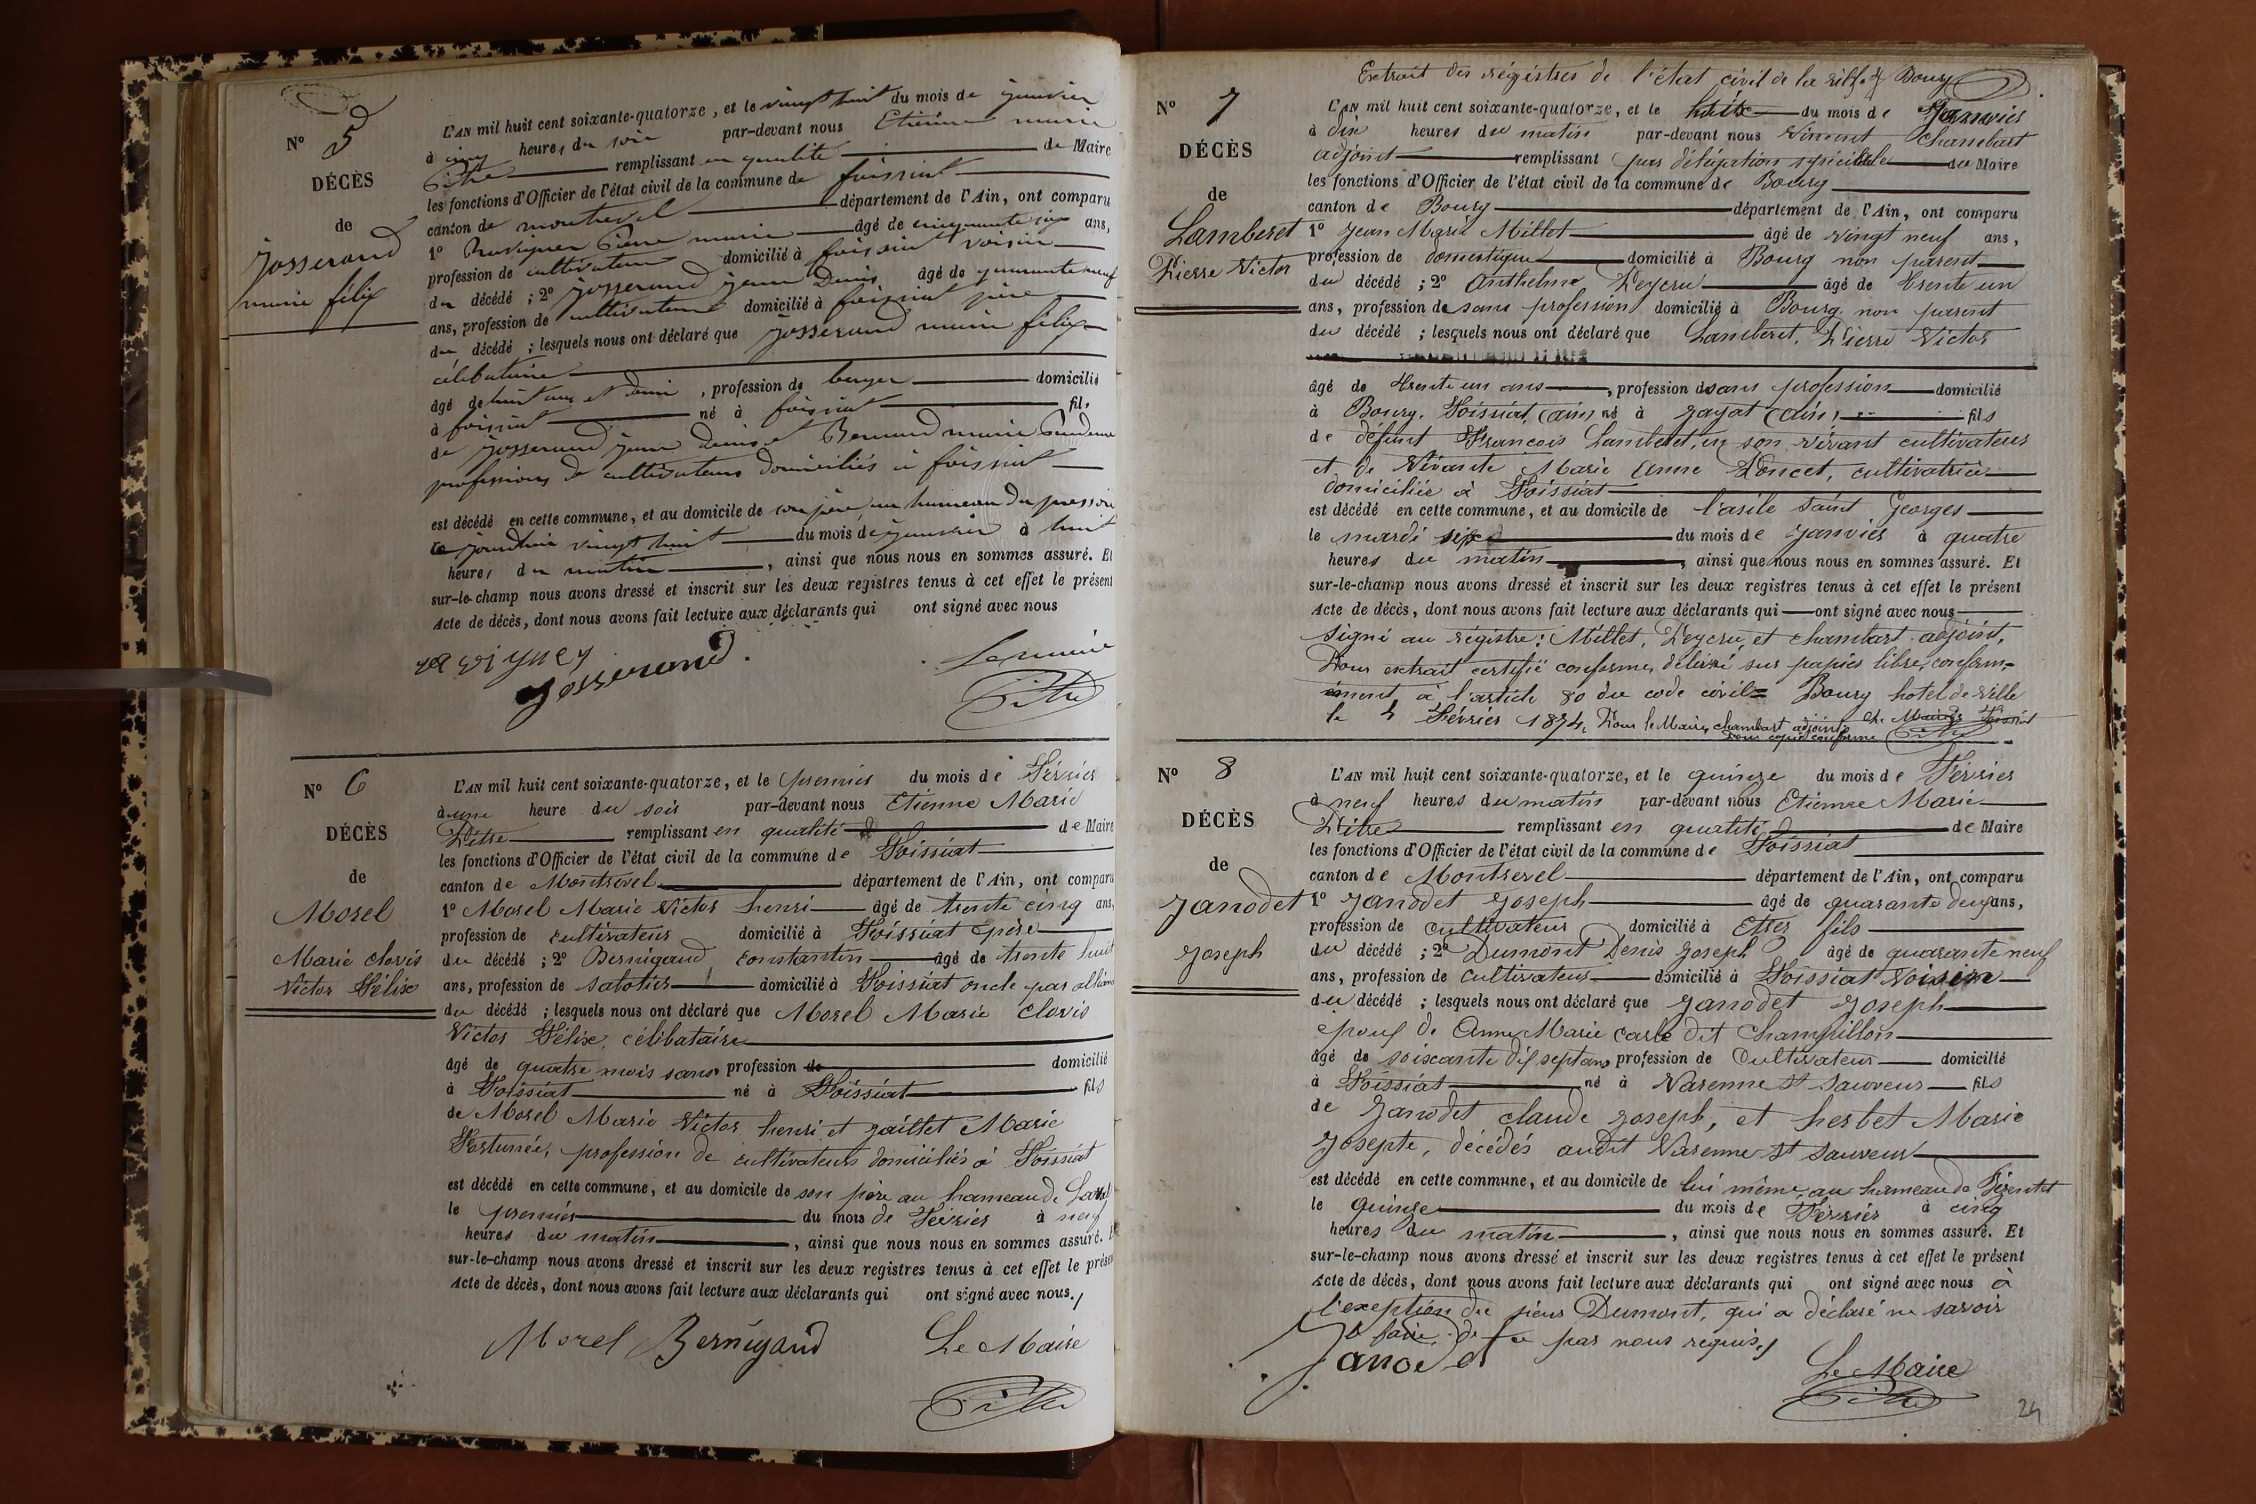 N° 5
DÉCÈS
de
Josserand
marie félix
L'AN mil huit cent soixante-quatorze, et le vingt huit du mois de janvier
à cinq heures du soir par-devant nous Etienne marie
Pitre remplissant en qualité de Maire
les fonctions d'Officier de l'état civil de la commune de foissiat
canton de montrevel département de l'Ain, ont comparu
1° marie âgé de cinquante six ans,
profession de cultivateur domicilié à foissiat voisin
du décédé ; 2° Josserand jean Denis âgé de quarante neuf
ans, profession de cultivateur domicilié à foissiat père
du décédé ; lesquels nous ont déclaré que Josserand marie félix
célibataire
âgé de huit ans et demi, profession de berger domicilié
à foissiat né à foissiat fils
de Josserand jean denis et Bernand marie
professions de cultivateurs domiciliés à foissiat
est décédé en cette commune, et au domicile de son père, au hameau du pressoir
le jourdhui vingt huit du mois de janvier à huit
heures du matin, ainsi que nous nous en sommes assuré. Et
sur-le-champ nous avons dressé et inscrit sur les deux registres tenus à cet effet le présent
Acte de décès, dont nous avons fait lecture aux déclarants qui ont signé avec nous
Josserand. Le maire
Pitre
N° 6
DÉCÈS
de
Morel
Marie clovis
Victor Félix
L'AN mil huit cent soixante-quatorze, et le premier du mois de Février
à une heure du soir par-devant nous Etienne Marie
Pitre remplissant en qualité de Maire
les fonctions d'Officier de l'état civil de la commune de Foissiat
canton de Montrevel département de l'Ain, ont comparu
1° Morel Marie Victor henri âgé de trente cinq ans,
profession de cultivateur domicilié à Foissiat père
du décédé ; 2° Bernigaud constantin âgé de trente huit
ans, profession de sabotier domicilié à Foissiat oncle par alliance
du décédé ; lesquels nous ont déclaré que Morel Marie clovis
Victor Félix, célibataire
âgé de quatre mois sans profession de domicilié
à Foissiat né à Foissiat fils
de Morel Marie Victor henri et Jaillet Marie
Fortunée, profession de cultivateurs domiciliés à Foissiat
est décédé en cette commune, et au domicile de son père au hameau de
le premier du mois de Février à neuf
heures du matin, ainsi que nous nous en sommes assuré. Et
sur-le-champ nous avons dressé et inscrit sur les deux registres tenus à cet effet le présent
Acte de décès, dont nous avons fait lecture aux déclarants qui ont signé avec nous./
Morel Bernigaud Le Maire
Pitre
Extrait des régistres de l'état civil de la ville de Bourg
N° 7
DÉCÈS
de
Lamberet
Pierre Victor
L'AN mil huit cent soixante-quatorze, et le huit du mois de Janvier
à dix heures du matin par-devant nous Vincent Chambart
adjoint remplissant par délégation spéciale du Maire
les fonctions d'Officier de l'état civil de la commune de Bourg
canton de Bourg département de l'Ain, ont comparu
1° Jean Marie Millet âgé de vingt neuf ans,
profession de domestique domicilié à Bourg non parent
du décédé ; 2° Anthelme Peycru âgé de trente un
ans, profession de sans profession domicilié à Bourg non parent
du décédé ; lesquels nous ont déclaré que Lamberet, Pierre Victor
âgé de trente un ans, profession de sans profession domicilié
à Bourg, Foissiat, (ain) né à Jayat (ain) fils
de défunt Francois Lamberet, en son vivant cultivateur
et de vivante Marie Anne Poncet, cultivatrice
domiciliée à Foissiat
est décédé en cette commune, et au domicile de l'asile saint Georges
le mardi six du mois de Janvier à quatre
heures du matin, ainsi que nous nous en sommes assuré. Et
sur-le-champ nous avons dressé et inscrit sur les deux registres tenus à cet effet le présent
Acte de décès, dont nous avons fait lecture aux déclarants qui ont signé avec nous
signé au régistre: Millet, Peycru, et chambart adjoint.
Pour extrait certifié conforme, délivré sur papier libre, conform-
ément à l'article 80 du code civil = Bourg hotel de ville
le 4 Février 1874, Pour le Maire, chambart adjoint Le Maire de Foissiat
Pour copie conforme Pitre
N° 8
DÉCÈS
de
Janodet
Joseph
L'AN mil huit cent soixante-quatorze, et le quinze du mois de Février
à neuf heures du matin par-devant nous Etienne Marie
Pitre remplissant en qualité de Maire
les fonctions d'Officier de l'état civil de la commune de Foissiat
canton de Montrevel département de l'Ain, ont comparu
1° Janodet Joseph âgé de quarante deux ans,
profession de cultivateur domicilié à Etrez fils
du décédé ; 2° Dumont Denis Joseph âgé de quarante neuf
ans, profession de cultivateur domicilié à Foissiat Voisin
du décédé ; lesquels nous ont déclaré que Janodet Joseph
époux de Anne Marie carle dit Champillon
âgé de soixante dix sept ans profession de Cultivateur domicilié
à Foissiat né à Varenne St Sauveur fils
de Janodet claude Joseph, et herbet Marie
Josepte, décédés audit Varenne St Sauveur
est décédé en cette commune, et au domicile de lui même, au hameau de
le quinze du mois de Février à cinq
heures du matin, ainsi que nous nous en sommes assuré. Et
sur-le-champ nous avons dressé et inscrit sur les deux registres tenus à cet effet le présent
Acte de décès, dont nous avons fait lecture aux déclarants qui ont signé avec nous à
l'exeption du sieur Dumont, qui a déclaré ne savoir
le faire de ce par nous requis./
Janodet Le Maire
Pitre
24